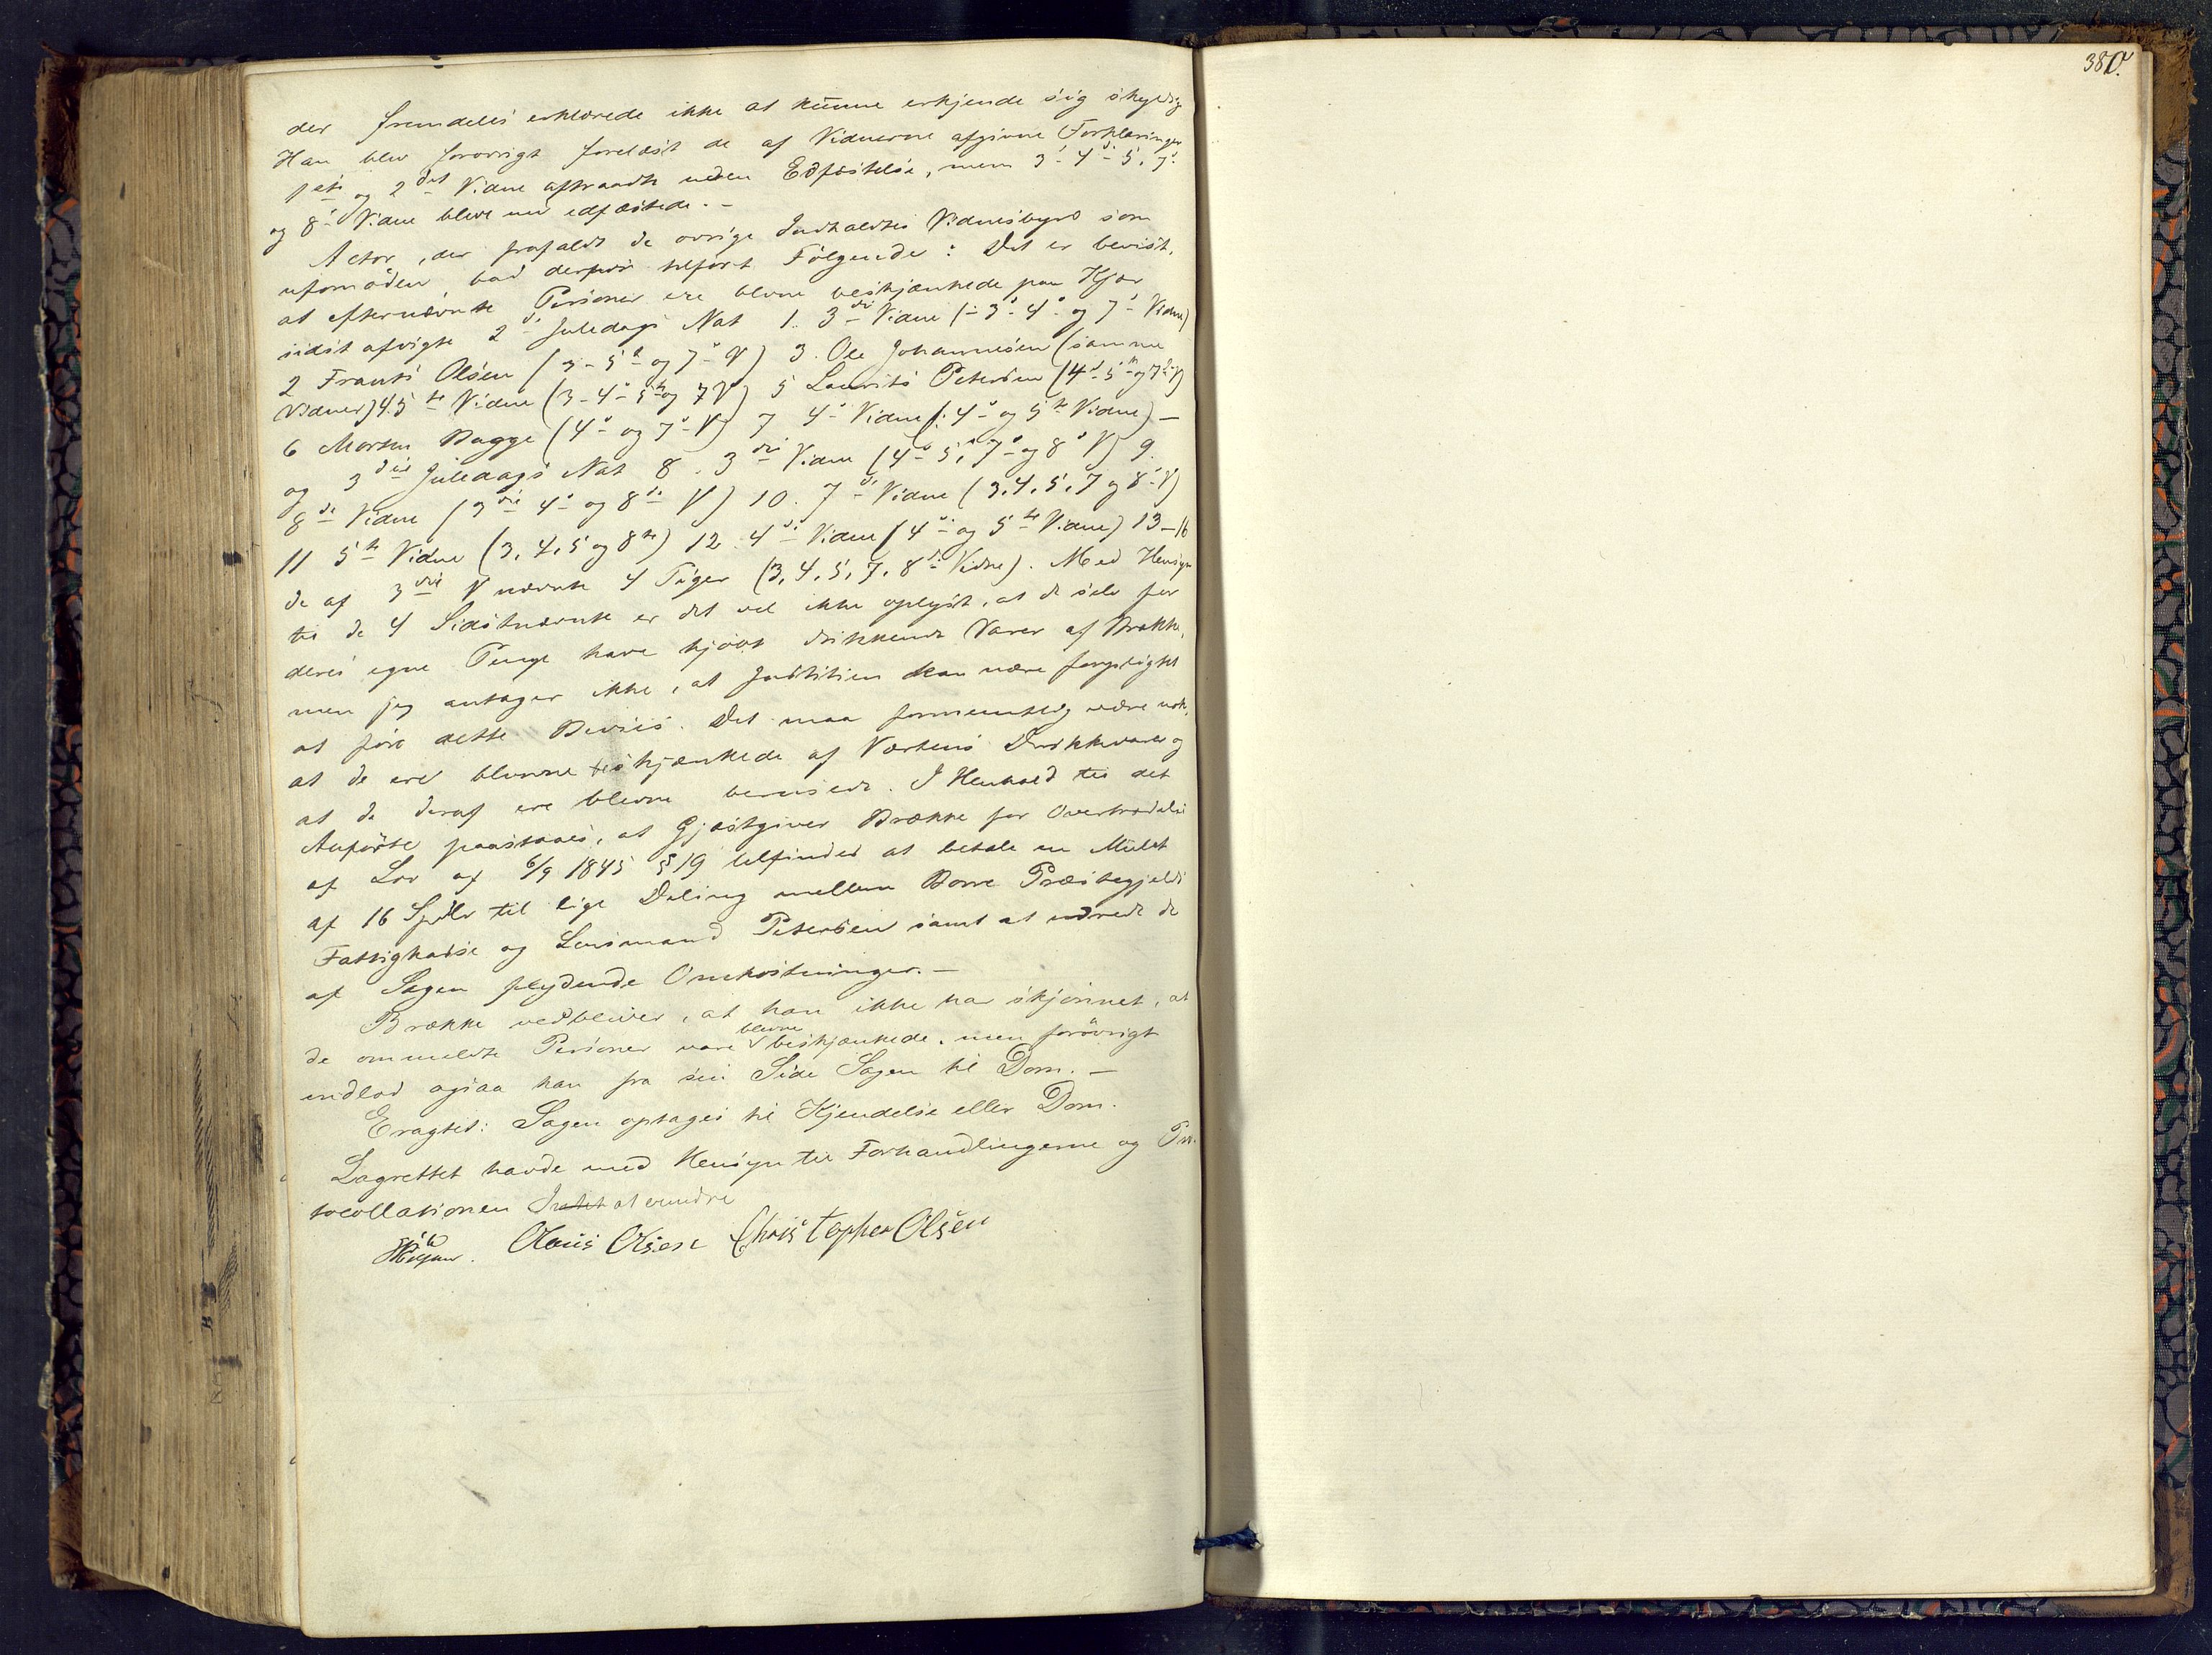 der fremdeles erklærede ikke at kunne erkjende sig skyldig
Han blev forøvrigt forelæst de af Vidnerne afgivne Forklaringer
1ste og 2det Vidne aftraadte uden Edfæstelse, men 3-4-5, 7
og 8de Vidne bleve nu edfæstede.-
Actor, der frafaldt de øvrige Indkaldtes Vidnesbyrd som
ufornøden, bad derpaa tilført Følgende: Det er bevist,
at efternævnte Personer ere blevne beskjænkede paa Kjær
sidst afvigte 2 Juledags Nat 1. 3die Vidne (-3-4- og 7- Vidne)
2 Frants Olsen (3-5te og 7-V) 3. Ole Johannesen (samme
Vidner) 4.5te Vidne (3-4-5te og 7V) 5 Laurits Petersen (4-5te og 7-V)
6 Morten Bagge (4- og 7-V) 7 4- Vidne (: 4- og 5te Vidne)-
og 3die Juledags Nat 8. 3die Vidne (4-5, 7- og 8 V) 9.
8de Vidne (3die 4- og 8de V) 10. 7de Vidne (3, 4, 5, 7 og 8-V)
11 5te Vidne (3, 4, 5 og 8de) 12. 4de Vidne (4de og 5te Vidne) 13-16
de af 3die V nævnte 4 Piger (3, 4, 5, 7, 8de Vidne). Med Hensyn
til de 4 Sidstnævnte er det vel ikke oplyst, at de selv for
deres egne Penge have kjøbt drikkende Varer af Brække,
men jeg antager ikke, at Justitien kan være forpligtet
at føre dette Beviis. Det maa formentlig være nok,
at de ere blevne beskjænkede af Vertens Drikkevarer og
at de deraf ere blevne berusede. I Henhold til det
Anførte paastaaes, at Gjæstgiver Brække for Overtrædelse
af Lov af 6/9 1845 § 19 tilfindes at betale en Mulct
af 16 Spdlr til lige Deling mellem Borre Præstegjelds
Fattigkasse og Lensmand Petersen samt at udrede de
af Sagen flydende Omkostninger.-
Brække vedbliver, at han ikke har skjønnet, at
de ommeldte Personer vare blevne beskjænkede, men forøvrigt
indlod ogsaa han fra sin Side Sagen til Dom.-
Eragtet: Sagen optages til Kjendelse eller Dom.
Lagrettet havde med Hensyn til Forhandlingerne og Pro-
tocollationen Intet at erindre
Olaus Olsen Christopher Olsen
380.